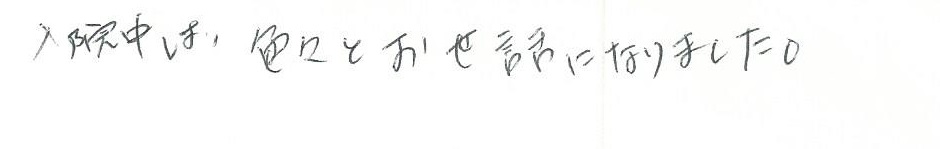 入院中は、色々とおせ話になりました。